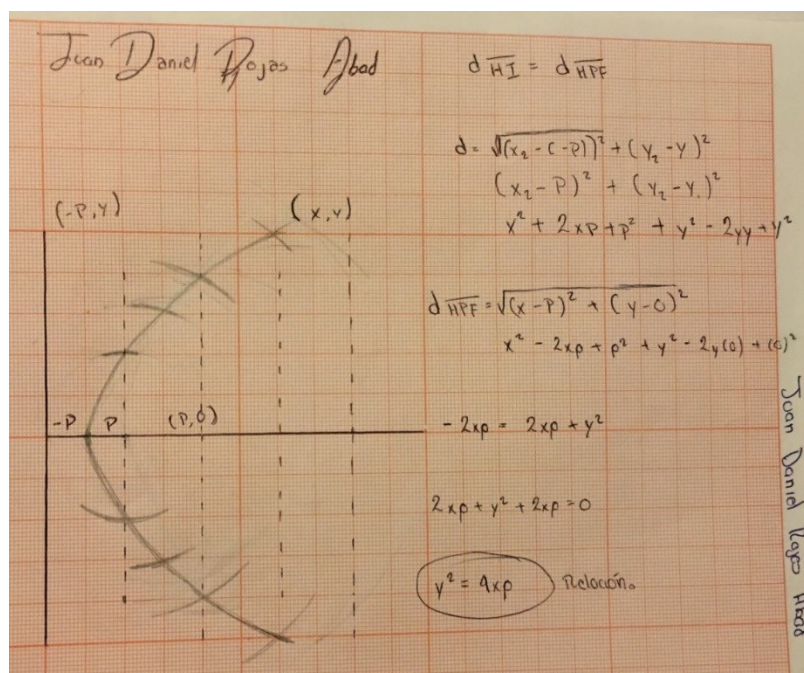 Juan Daniel Rojas Abad
d HI = d HPF
d = √(x₂ - (-P))² + (y₂ - y)²
(x₂ - P)² + (y₂ - y.)²
x² + 2xp + p² + y² - 2yy + y²
(-P, Y)
(x, y)
d HPF = √(x - P)² + (y - 0)²
x² - 2xp + p² + y² - 2y(0) + (0)²
-P P (P, 0)
- 2xp = 2xp + y²
2xp + y² + 2xp = 0
y² = 4xp Relación.
Juan Daniel Rojas Abad